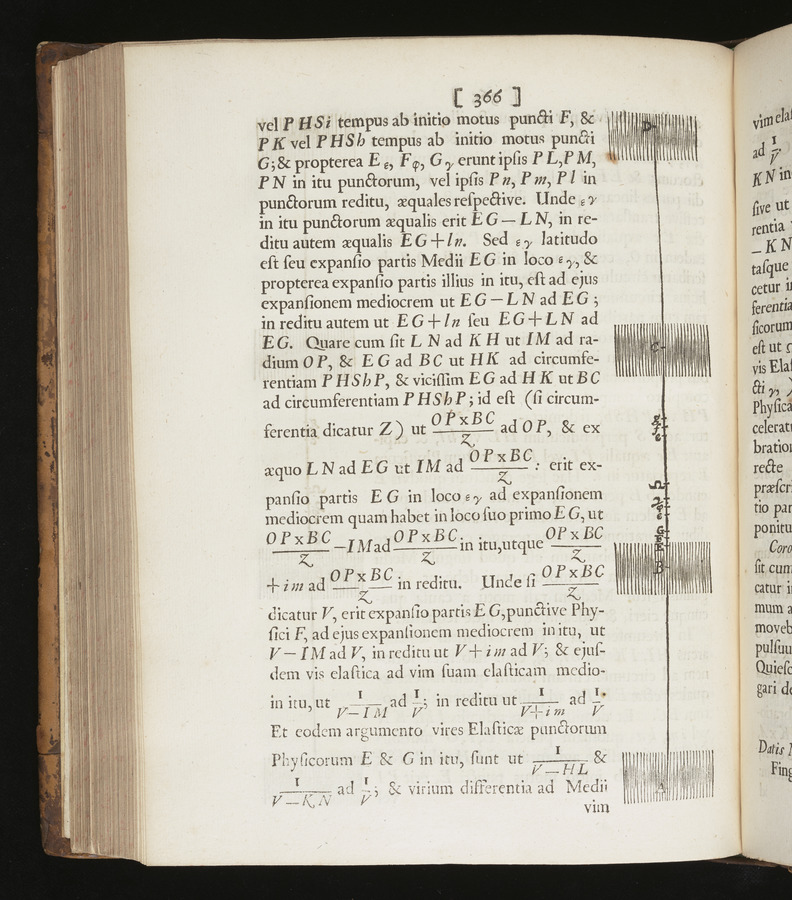 [ 366 ]
vel P H S i tempus ab initio motus puncti F, &
P K vel P H S h tempus ab initio motus puncti
G; & propterea E ε, F φ, G γ erunt ipsis P L, P M,
P N in itu punctorum, vel ipsis P n, P m, P l in
punctorum reditu, æquales respective. Unde ε γ
in itu punctorum æqualis erit E G — L N, in re-
ditu autem æqualis E G + l n. Sed ε γ latitudo
est seu expansio partis Medii E G in loco ε γ, &
propterea expansio partis illius in itu, est ad ejus
expansionem mediocrem ut E G — L N ad E G ;
in reditu autem ut E G + l n seu E G + L N ad
E G. Quare cum sit L N ad K H ut I M ad ra-
dium O P, & E G ad B C ut H K ad circumfe-
rentiam P H S h P, & vicissim E G ad H K ut B C
ad circumferentiam P H S h P ; id est (si circum-
ferentia dicatur Z ) ut O P x B C / Z ad O P, & ex
æquo L N ad E G ut I M ad O P x B C / Z : erit ex-
pansio partis E G in loco ε γ ad expansionem
mediocrem quam habet in loco suo primo E G, ut
O P x B C / Z — I M ad O P x B C / Z in itu, utque O P x B C / Z
+ i m ad O P x B C / Z in reditu. Unde si O P x B C / Z
dicatur V, erit expansio partis E G, punctive Phy-
sici F, ad ejus expansionem mediocrem in itu, ut
V — I M ad V, in reditu ut V + i m ad V; & ejus-
dem vis elastica ad vim suam elasticam medio-
in itu, ut 1 / V — I M ad 1 / V ; in reditu ut 1 / V + i m ad 1 / V .
Et eodem argumento vires Elasticæ punctorum
Physicorum E & G in itu, sunt ut 1 / V — H L &
1 / V — K N ad 1 / V ; & virium differentia ad Medii
vim
D
C
B
A
vim ela
ad 1 / V
K N in
sive ut
rentia
— K N
tasque
cetur i
ferentia
sicorum
est ut
vis Elas
cti γ,
Physica
celerat
bration
recte
præscri
tio par
ponitu
Coro
sit cum
catur i
mum a
moveb
pulsuu
Quiesc
gari de
Datis
Fing